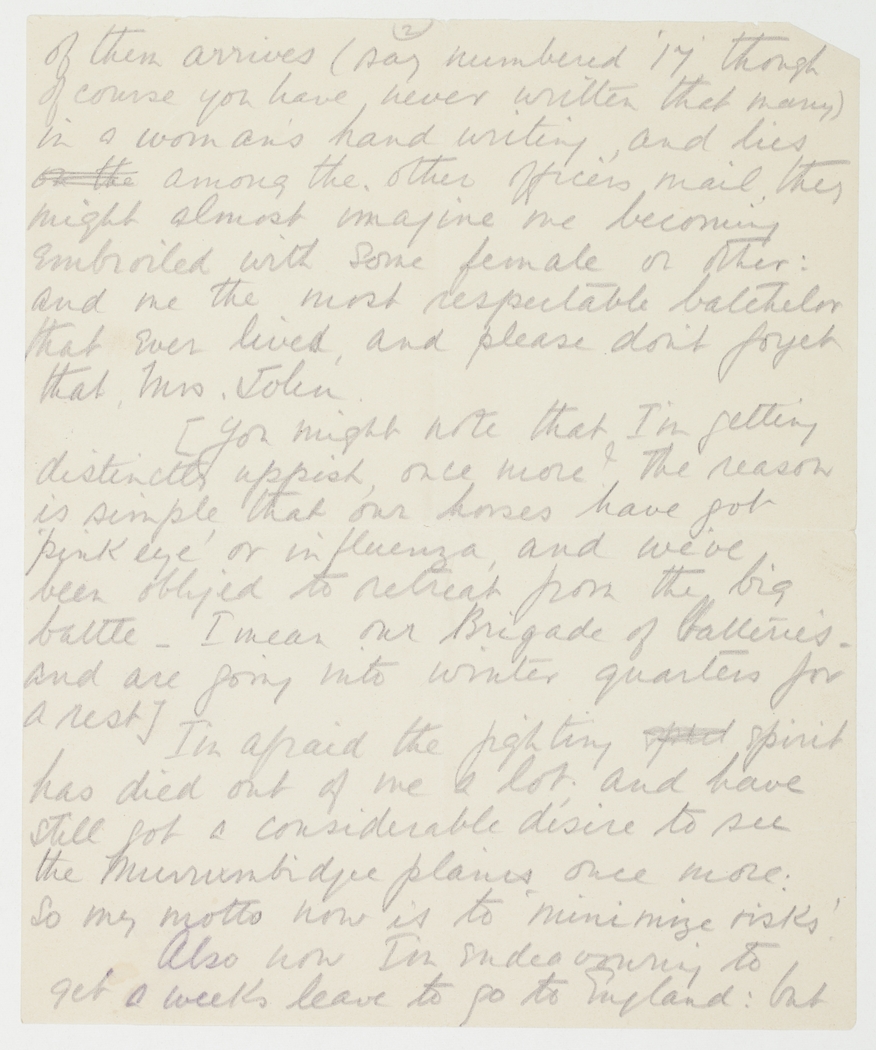 (2)
of them arrives (say numbered '17' though
of course you have never written that many)
in a woman's hand writing, and lies
on the among the other officers mail, they
might almost imagine me becoming
embroiled with some female or other:
and me the most respectable batchelor
that ever lived, and please don't forget
that, Mrs. John.
[You might note that I'm getting
distinctly uppish, once more? The reason
is simple, that our horses have got
'pink eye' or influenza, and we've
been obliged to retreat from the big
battle - I mean our Brigade of Batteries -
and are going into winter quarters for
a rest]
I'm afraid the fighting spirit
has died out of me a lot: and have
still got a considerable desire to see
the Murrumbidgee plains once more:
So my motto now is to 'minimize risks'
Also now I'm endeavouring to
get a weeks leave to go to England: but